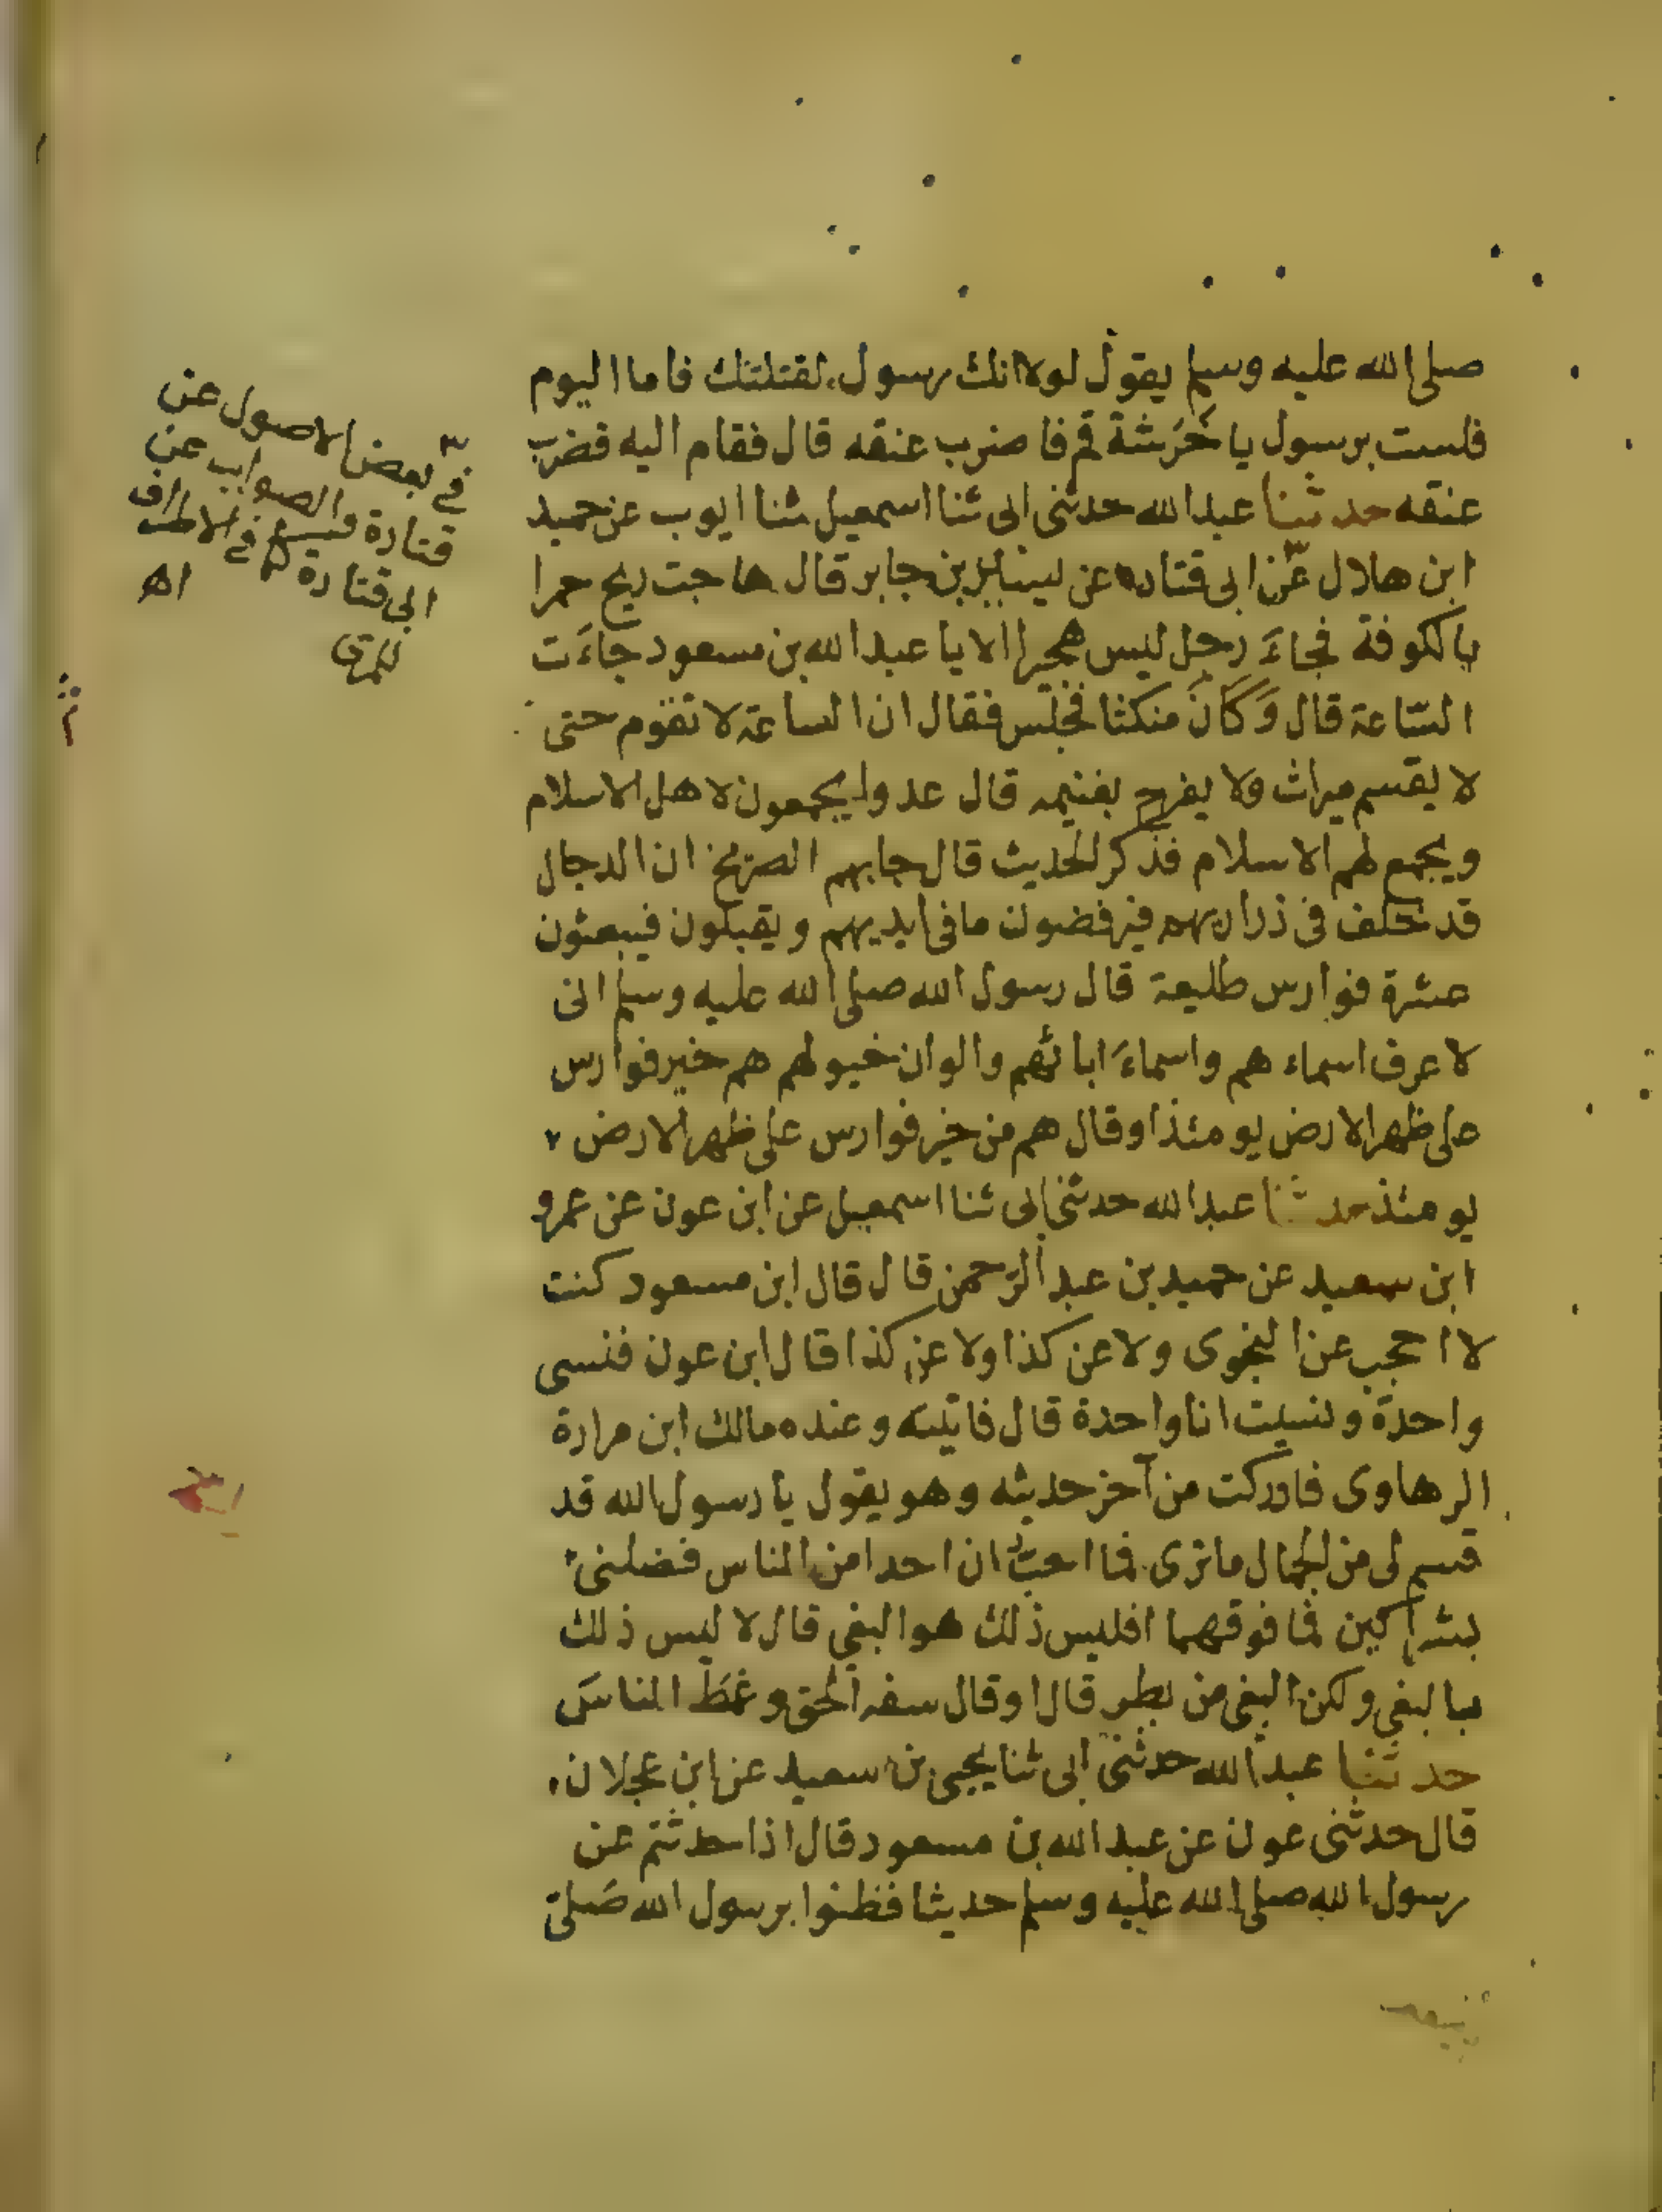 صلى الله عليه وسلم يقول لولا انك رسول لقتلتك فاما اليوم
فلست برسول يا خَرَشة قم فاضرب عنقه قال فقام اليه فضرب
عنقه حدثنا عبدالله حدثنى ابى ثنا اسمعيل ثنا ايوب عن حميد
ابن هلال عن ابى قتاده عن بن جابر قال هاجت ريح حمرا
بالكوفة فجاءَ رجل ليس هجيرا الا يا عبدالله بن مسعود جاءَت
السّاعة قال وَكَانَ متكئا فجلس فقال ان الساعة لا تقوم حتى
لا يقسم ميراث ولا يفرح بغنيمه قال عدوا يجمعون لاهل الاسلام
ويجمع لهم الاسلام فذكر الحديث قال جابهم الصريخ ان الدجال
قد خلف فى ذراريهم فيرفضون ما فى ايديهم ويقبلون فيبعثون
عشرة فوارس طليعة قال رسول الله صلى الله عليه وسلم انى
لا عرف اسماء هم واسماءَ ابائهم والوان خيولهم هم خير فوارس
على ظهر الارض يومئذ اوقال هم من خير فوارس على ظهر الارض
يومئذ حدثنا عبدالله حدثنى ابى ثنا اسمعيل عن ابن عون عن عمرو
ابن سعيد عن حميد بن عبد الرّحمن قال قال ابن مسعود كنت
لا احجب عن النجوى ولا عن كذا ولا عن كذا قال ابن عون فنسى
واحدة ونسيت انا واحدة قال فاتيته وعنده مالك ابن مرارة
الرهاوى فادركت من آخر حديثه وهو يقول يا رسول الله قد
قسم لى من الجمال ما ترى فما احبّ ان احدا من الناس فضلنى
بشراكين فما فوقهما افليس ذلك هو البغى قال لا ليس ذلك
بالبغى ولكن البغى من بطر قال اوقال سفه الحق وغمَطَ الناسَ
حدثنا عبدالله حدثنى ابى ثنا يحيى بن سعيد عن ابن عجلان
قال حدثنى عون عن عبدالله بن مسعود قال اذا حدثتم عن
رسول الله صلى الله عليه وسلم حديثا فظنوا برسول الله صَلى
فى بعض الاصول عن
قتادة والصواب عن
ابى قتادة كما فى الاطراف
للمزى اه